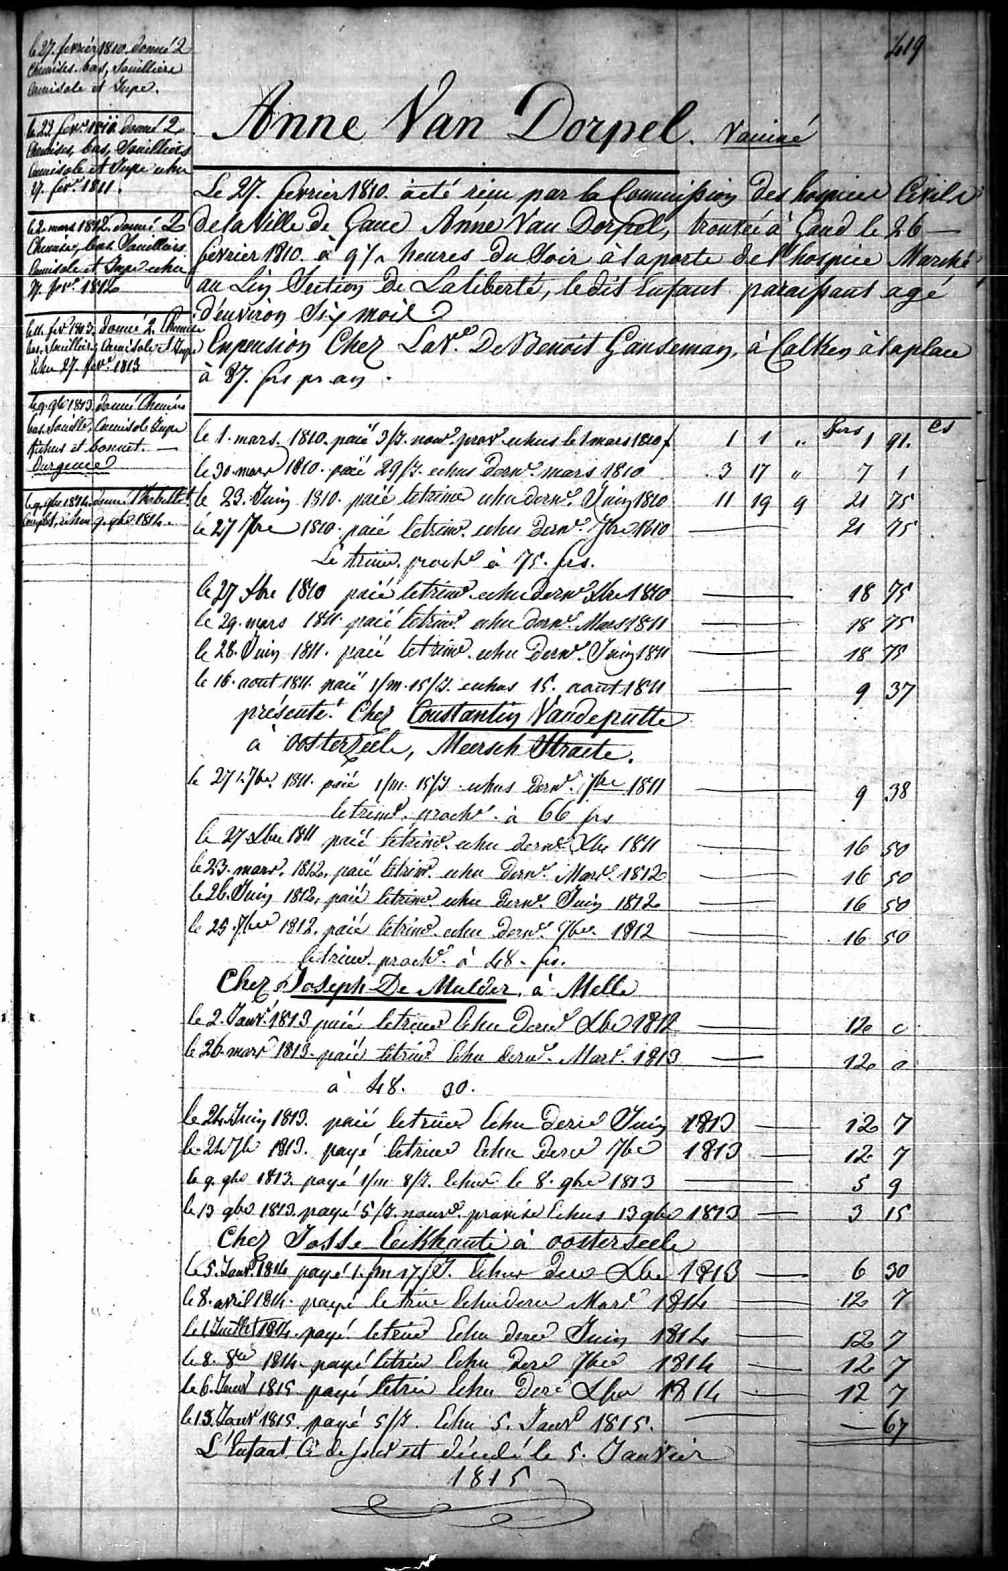 419
le 27. fevrier 1810. donné 2
Chemises. bas, Souilliere
Camisole et Jupe.
le 22. fevr. 1811 donné 2
Chemises, bas, Souilliers
Camisole et Jupe echu
27. fevr. 1811.
le 2. mars 1812. donné 2
Chemise, bas Souilliers
Camisole et Jupe echu
27. fevr. 1812
le 11. fevr. 1813. donné 2. Chemise
bas, Souilliers, Camisole et Jupe
Echu 27. fevr. 1813
le 9. 9bre 1813 donné Chemise
bas. Souilles. Camisole Jupe
fichus et bonnet.
Durgence
1814
9. 9bre 1814.
Anne Van Dorpel. Vaciné
Le 27. fevrier 1810. à été reçu par la Commission des hospices Civils
de la Ville de Gand Anne Van Dorpel, trouvée à Gand le 26
fevrier 1810. à 9 1/2 heures du Soir à la porte de l'hospice Marché
au Lin Section De La liberté, ledit Enfant paraissant agé
d'environ Six mois
En pension Chez La Ve. De Benoit Ganseman, à Calken à la place
à 87. frs pr an.
frs cs
le 1. mars. 1810. paié 3/J. nouv. prov. echus le 1 mars 1810 1 1 " 1 91.
le 30 mars 1810. paié 29/J. echus dernr. mars 1810 3 17 " 7 1
le 23. Juin 1810. paié le trime echu dernr. Juin 1810 11 19 9 21 75
le 27 7bre 1810. paié le trim. echu dernr. 7bre 1810 21 75
Le trim. proche à 75. frs.
le 27 Xbre 1810 paié le trimr. echu dernr Xbre 1810 18 75
le 29. mars 1811. paié le trimr. echu dernr. Mars 1811 18 75
le 28. Juin 1811. paié le trimr. echu Dernr. Juin 1811 18 75
le 16. aout 1811. paié 1/m. 15/J. echus 15. aout 1811 9 37
présente. Chez Constantin Vandeputte
à oosterzeele, Meersch Straete.
le 27. 7bre. 1811. paié 1/m. 15/J. echus Dernr. 7bre 1811 9 38
le trimr. proche. à 66 frs
le 27 Xbre 1811 paié le trimr. echu dernr. Xbre 1811 16 50
le 23. mars. 1812. paié le trimr. echu Dernr. Mars. 1812 16 50
le 26 Juin 1812. paié le trimr. echu Dernr. Juin 1812 16 50
le 25. 7bre 1812. paié le trimr. echu Dernr. 7bre. 1812 16 50
le trim. proche. à 48. frs.
Chez Joseph De Mulder, à Melle
le 2. Janvr. 1813 paié le trimr Echu Dernr Xbre 1812 12 0
le 26 mars 1813. paié le trimr Echu dernr. Mars. 1813 12 0
à 48. 30.
le 24. Juin 1813. paié le trime Echu Dernr Juin 1813 12 7
le 24 7bre 1813. payé le trime Echu Dernr 7bre 1813 12 7
le 9. 9bre 1813. payé 1/m 8/J. Echus le 8. 9bre 1813 5 9
le 13 9bre 1813. payé 5/J. nouvr. provise Echus 13 9bre 1813 3 15
Chez Josse Eeckhaute à oosterseele
le 5. Janvr. 1814 payé 1./m 17/J. Echus Dernr Xbre 1813 6 30
le 8. avril 1814. payé le trime Echu dernr Mars 1814 12 7
le 1 Juillet 1814. payé le trime Echu dernr Juin 1814 12 7
le 8. 8bre 1814. payé le trim Echu Dernr 7bre 1814 12 7
le 6. Janvr 1815 payé le trim Echu Dernr Xbre 1814 12 7
le 13. Janvr 1815. payé 5/J. Echu 5. Janvr 1815. 67
L'Enfant Ci dessus est décédé le 5. Janvier
1815